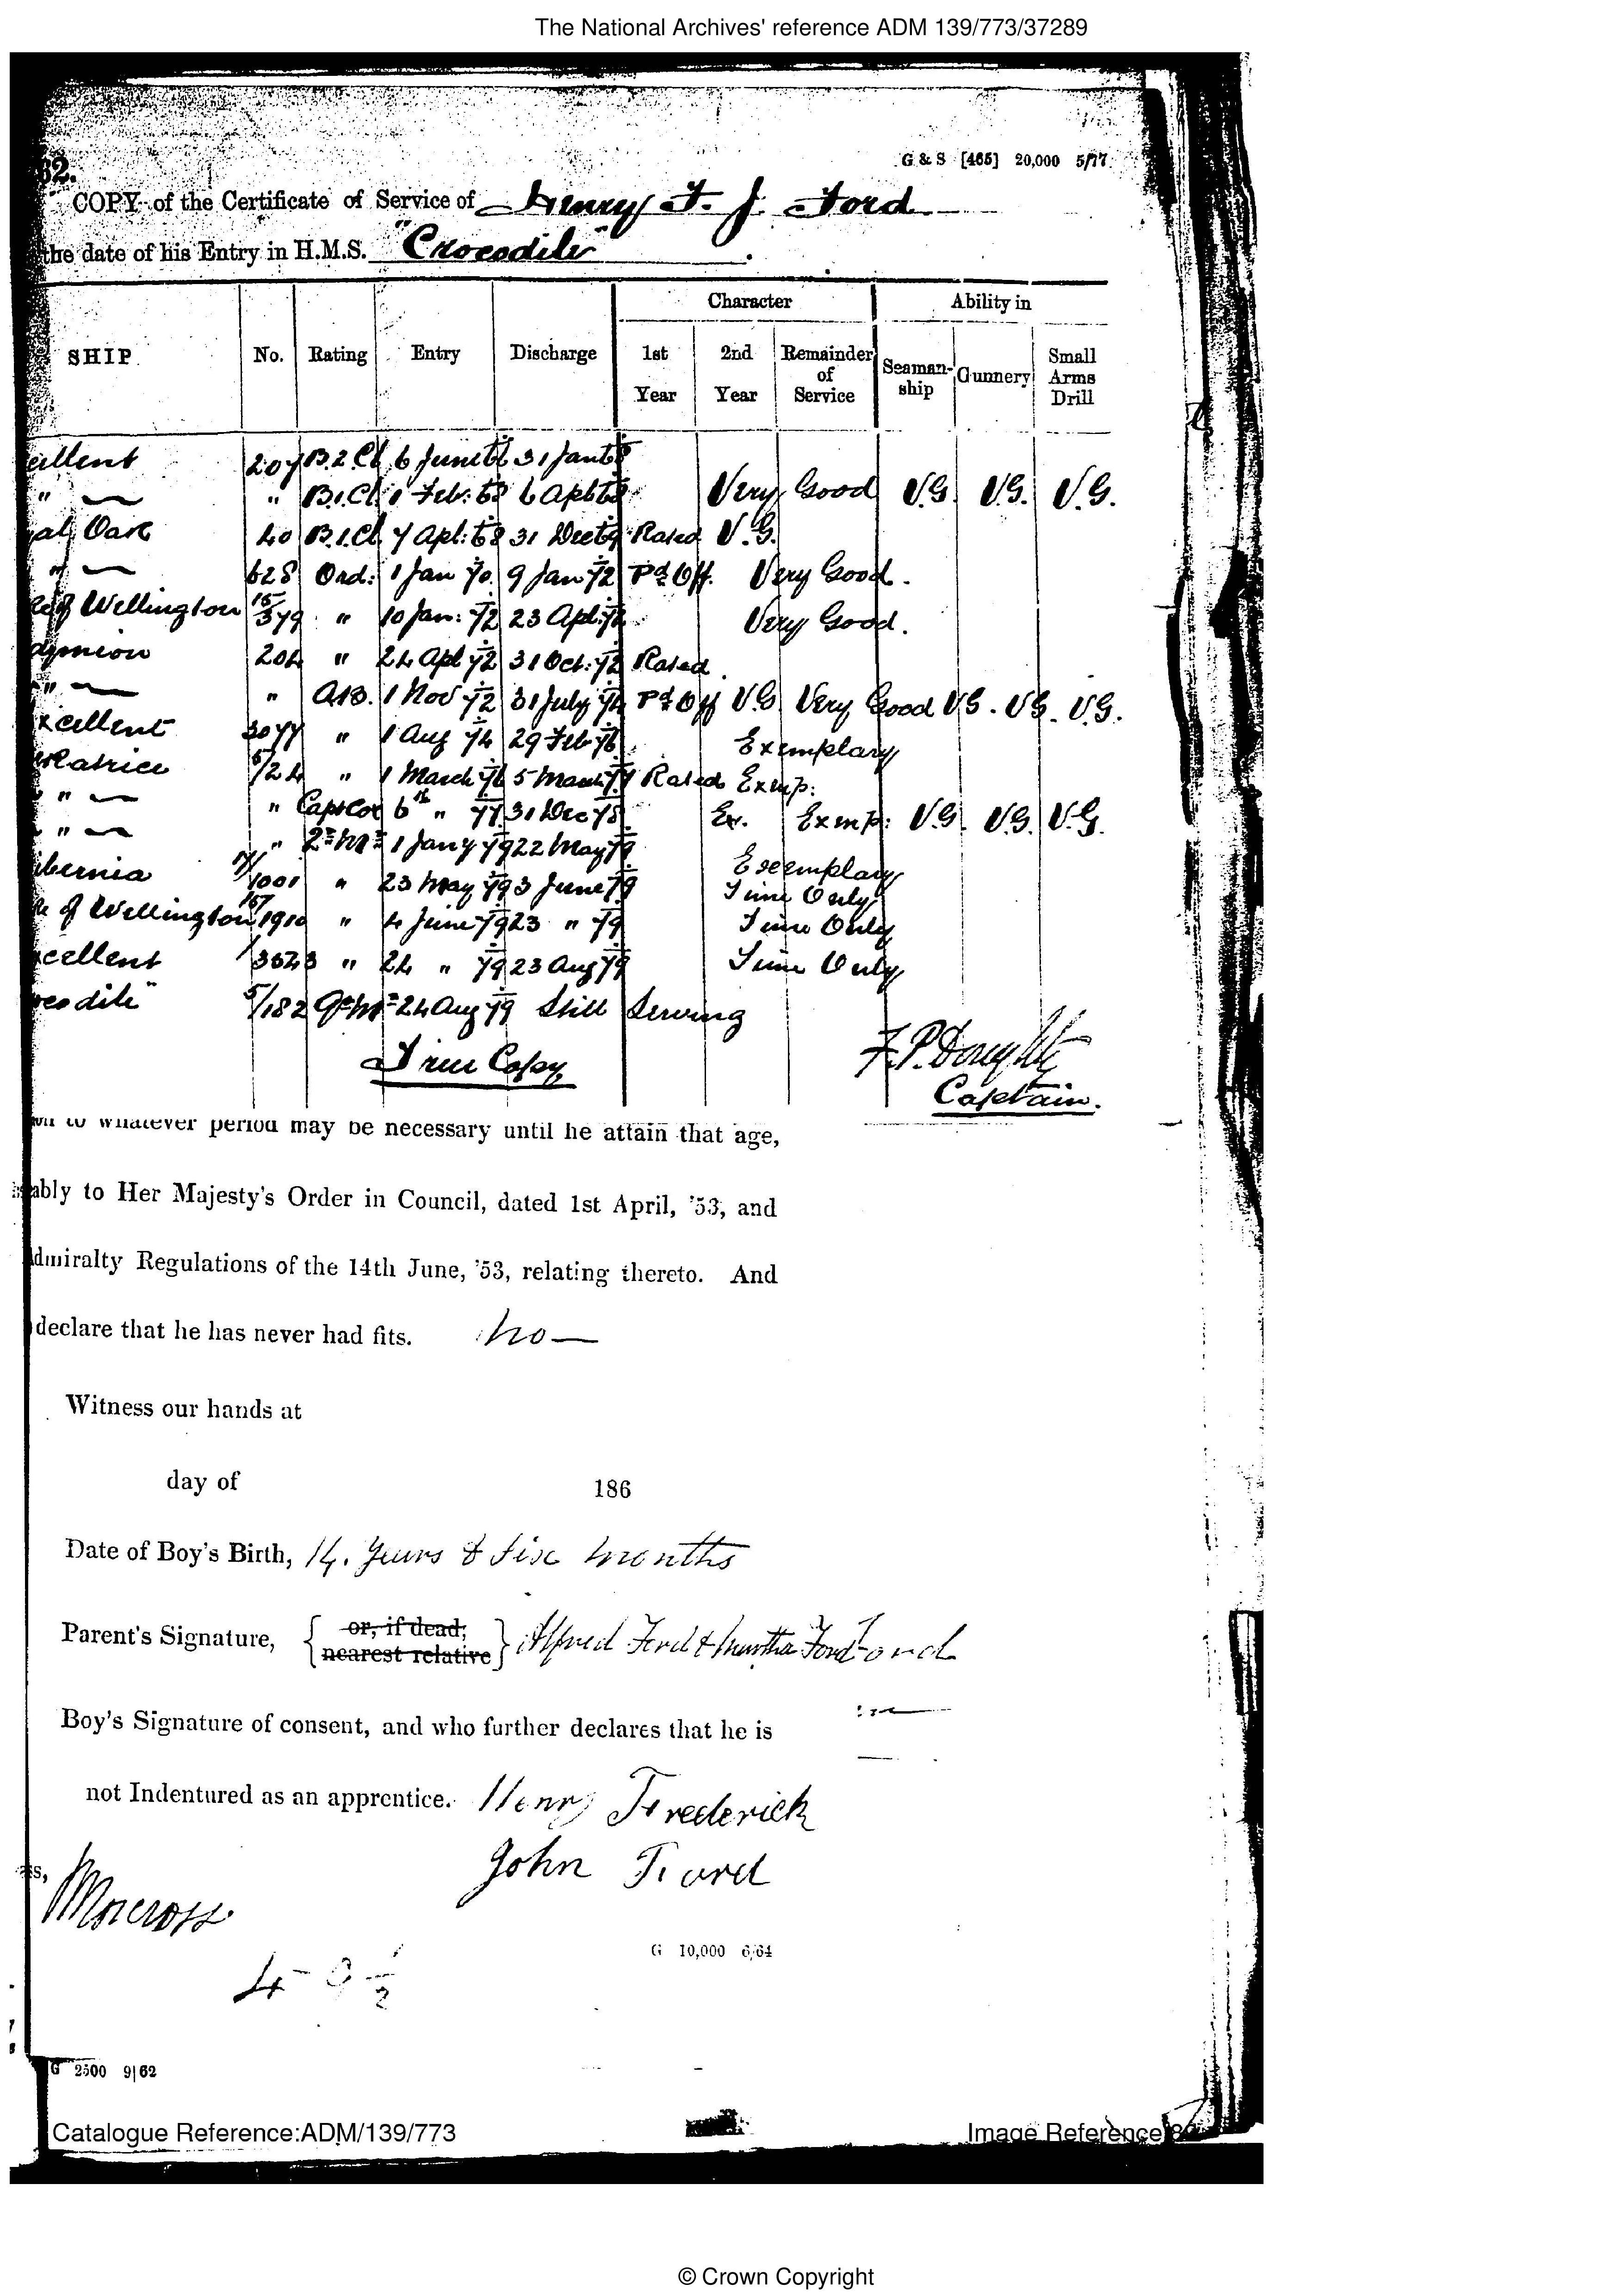 The National Archives' reference ADM 139/773/37289
G & S [465] 20,000 5/77.
62.
COPY of the Certificate of Service of Henry F. J. Ford
the date of his Entry in H.M.S. "Crocodile"
Character Ability in
SHIP. No. Rating Entry Discharge 1st Year 2nd Year Remainder of Service Seaman-ship Gunnery Small Arms Drill
cellent 207 B.2.Cl 6 June 31 Jan 68
" B.1.Cl 1 Feb: 68 6 Apl 68 Very Good V.G. V.G. V.G.
al Oak 40 B.1.Cl 7 Apl: 68 31 Dec 69 Rated V.G.
" 628 Ord: 1 Jan 70. 9 Jan 72 Pd Off. Very Good.
of Wellington 15/379 " 10 Jan: 72 23 Apl: 72 Very Good.
dymion 204 " 24 Apl 72 31 Oct: 72 Rated
" " A.B. 1 Nov 72 31 July 74 Pd Off V.G Very Good V.G. V.G. V.G.
xcellent 3077 " 1 Aug 74 29 Feb 76 Exemplary
5/24 " 1 March 76 5 March 77 Rated Exmp:
" " Capt Cox 6th " 77 31 Dec 78 Ex. Exmp: V.G. V.G. V.G.
" " 1 Jany 79 22 May 79
bernia 1001 " 23 May 79 3 June 79 Exemplary Time Only
of Wellington 1910 " 4 June 79 23 " 79 Time Only
cellent 3623 " 24 " 79 23 Aug 79 Time Only
ocodile" 5/182 24 Aug 79 Still Serving
True Copy
Captain.
on to whatever period may be necessary until he attain that age,
ably to Her Majesty's Order in Council, dated 1st April, '53, and
dmiralty Regulations of the 14th June, '53, relating thereto. And
declare that he has never had fits. no —
Witness our hands at
day of 186
Date of Boy's Birth, 14. Years & Six Months
Parent's Signature, { or, if dead, nearest relative } Alfred Ford & Martha Ford Ford
Boy's Signature of consent, and who further declares that he is
not Indentured as an apprentice. Henry Frederick
John Ford
G 10,000 6/64
G 2500 9/62
Catalogue Reference:ADM/139/773 Image Reference
© Crown Copyright